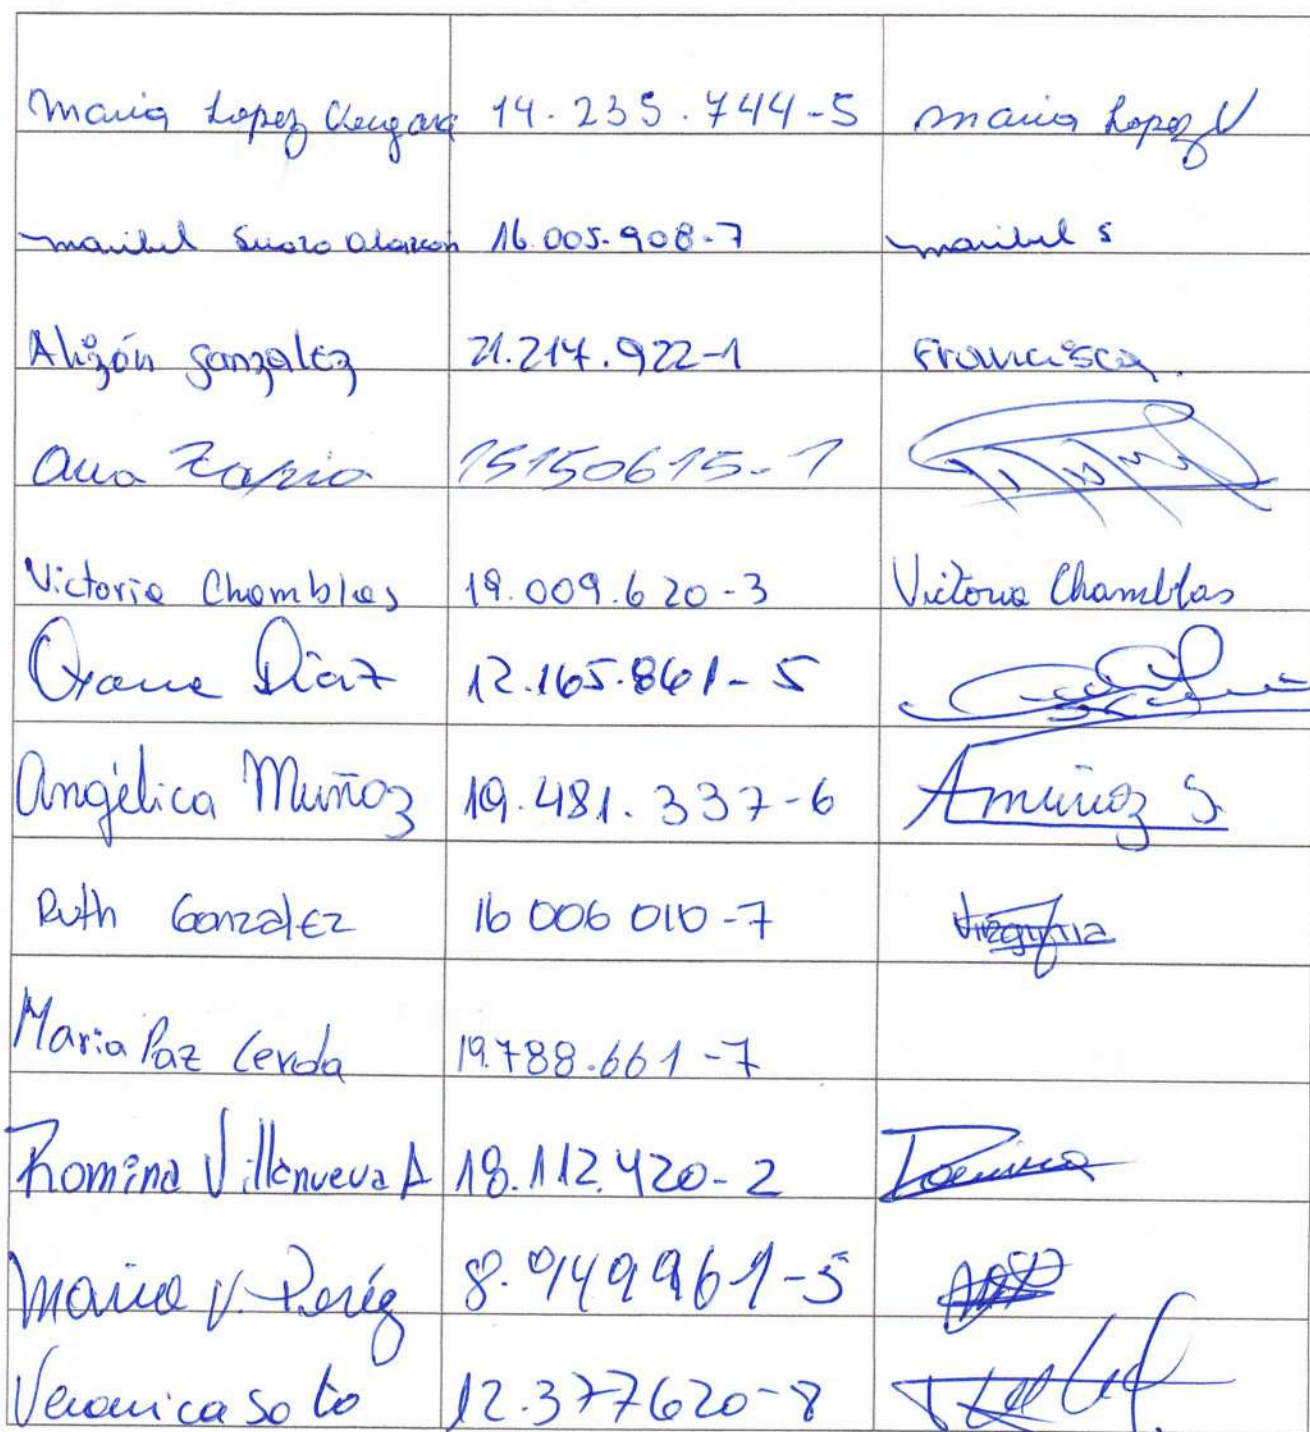 Maria Lopez Vergara 14.235.744-5 Maria Lopez V
maribel Suazo Alarcon 16.005.908-7 maribel s
Alizón González 21.217.922-1 Francisca.
Ana Tapia 15150615-1
Victoria Chamblas 19.009.620-3 Victoria Chamblas
Oxana Díaz 12.165.861-5
Angélica Muñoz 19.481.337-6 Amuñoz S.
Ruth Gonzalez 16 006 010-7 Virginia
Maria Paz Cerda 19.788.661-7
Romina Villanueva A 18.112.420-2 Romina
Maria V. Peréz 8.949961-5
Veronica Soto 12.377620-8